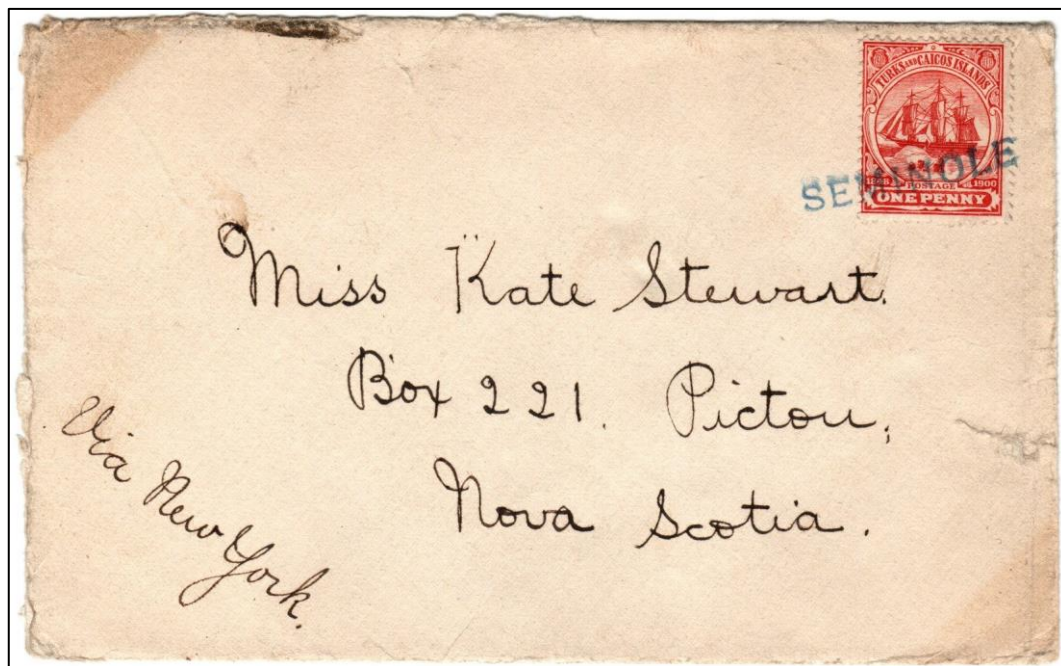 TURKS AND CAICOS ISLANDS
SEMINOLE
POSTAGE
1900
ONE PENNY
Miss Kate Stewart.
Box 221. Pictou,
Nova Scotia.
Via New York.